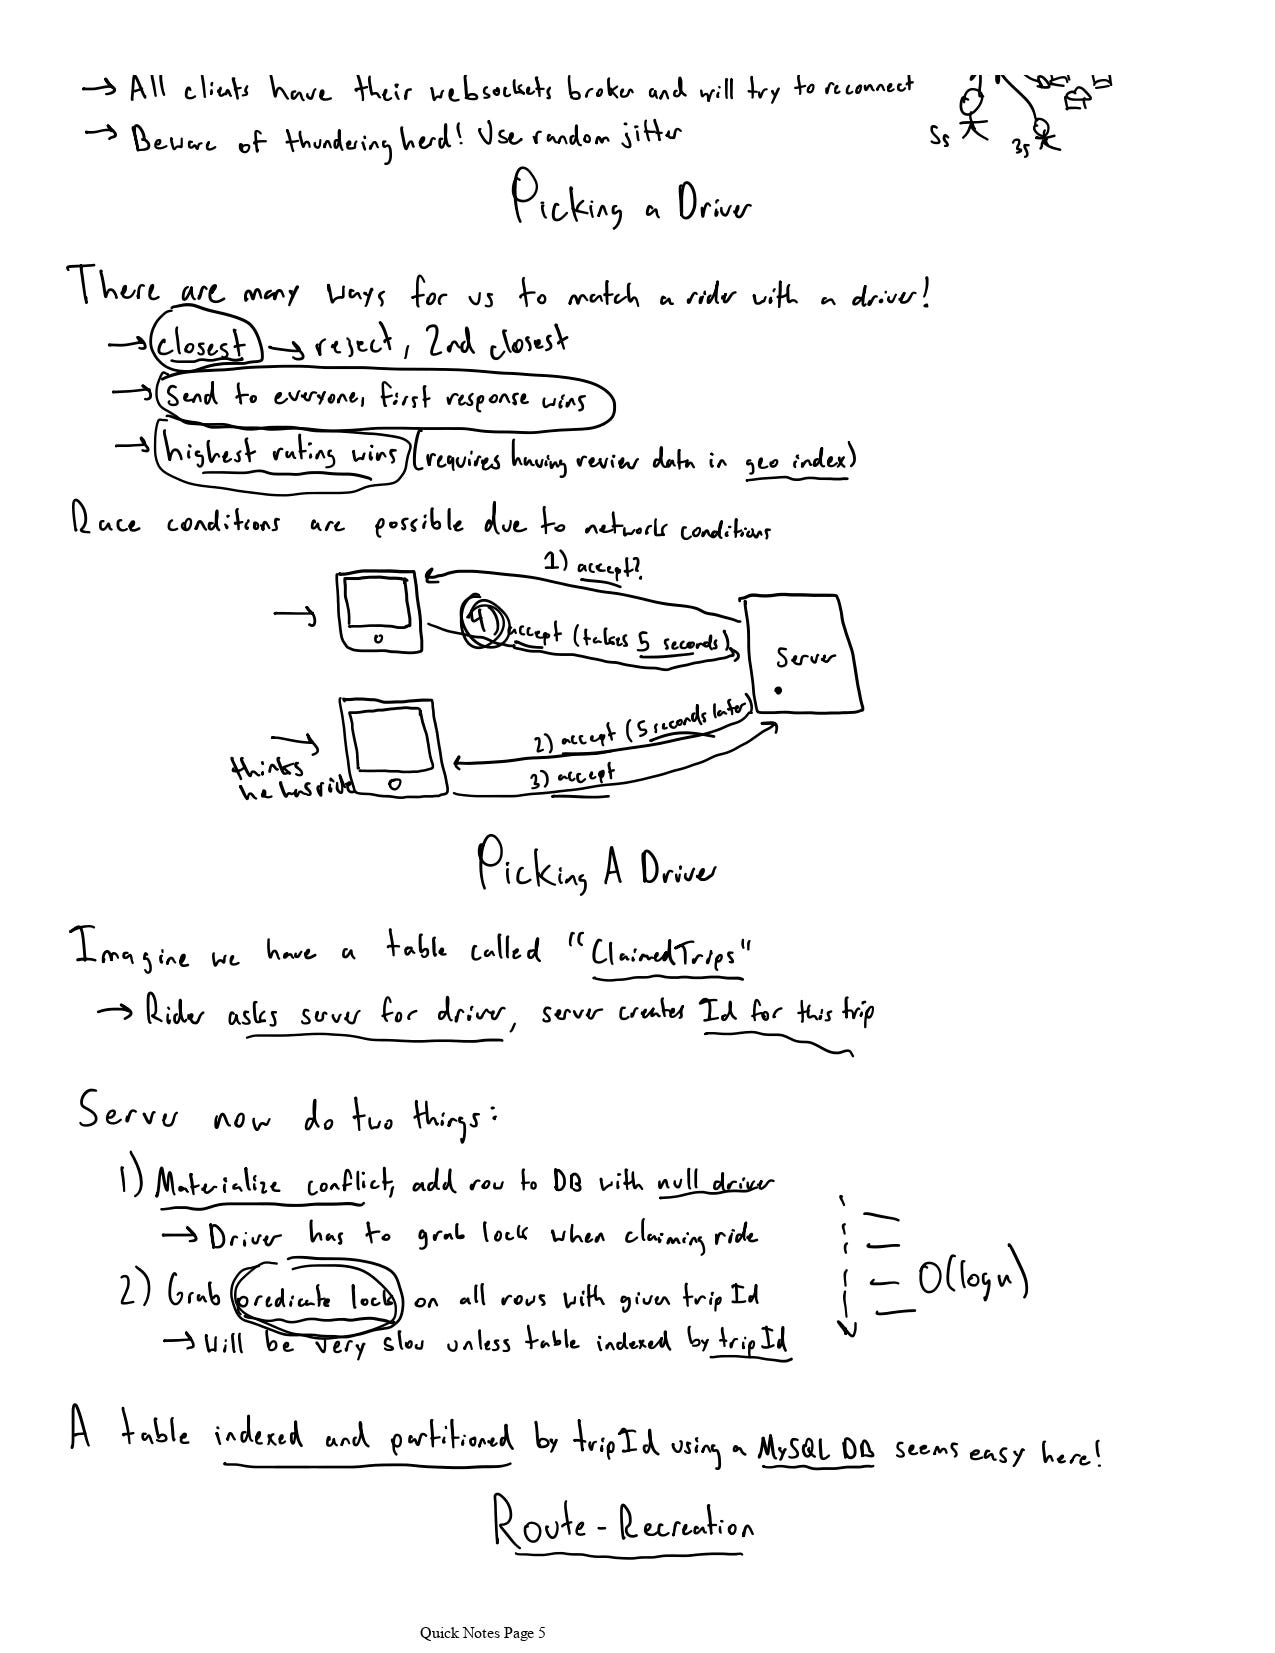 → All clients have their websockets broken and will try to reconnect
→ Beware of thundering herd! Use random jitter
5s 3s
Picking a Driver
There are many ways for us to match a rider with a driver!
→ closest → reject, 2nd closest
→ Send to everyone, first response wins
→ highest rating wins (requires having review data in geo index)
Race conditions are possible due to network conditions
1) accept?
4) accept (takes 5 seconds)
Server
2) accept (5 seconds later)
3) accept
thinks
he has ride
Picking A Driver
Imagine we have a table called "ClaimedTrips"
→ Rider asks server for driver, server creates Id for this trip
Server now do two things:
1) Materialize conflict, add row to DB with null driver
→ Driver has to grab lock when claiming ride
2) Grab predicate lock on all rows with given tripId
O(logn)
→ Will be very slow unless table indexed by tripId
A table indexed and partitioned by tripId using a MySQL DB seems easy here!
Route-Recreation
Quick Notes Page 5